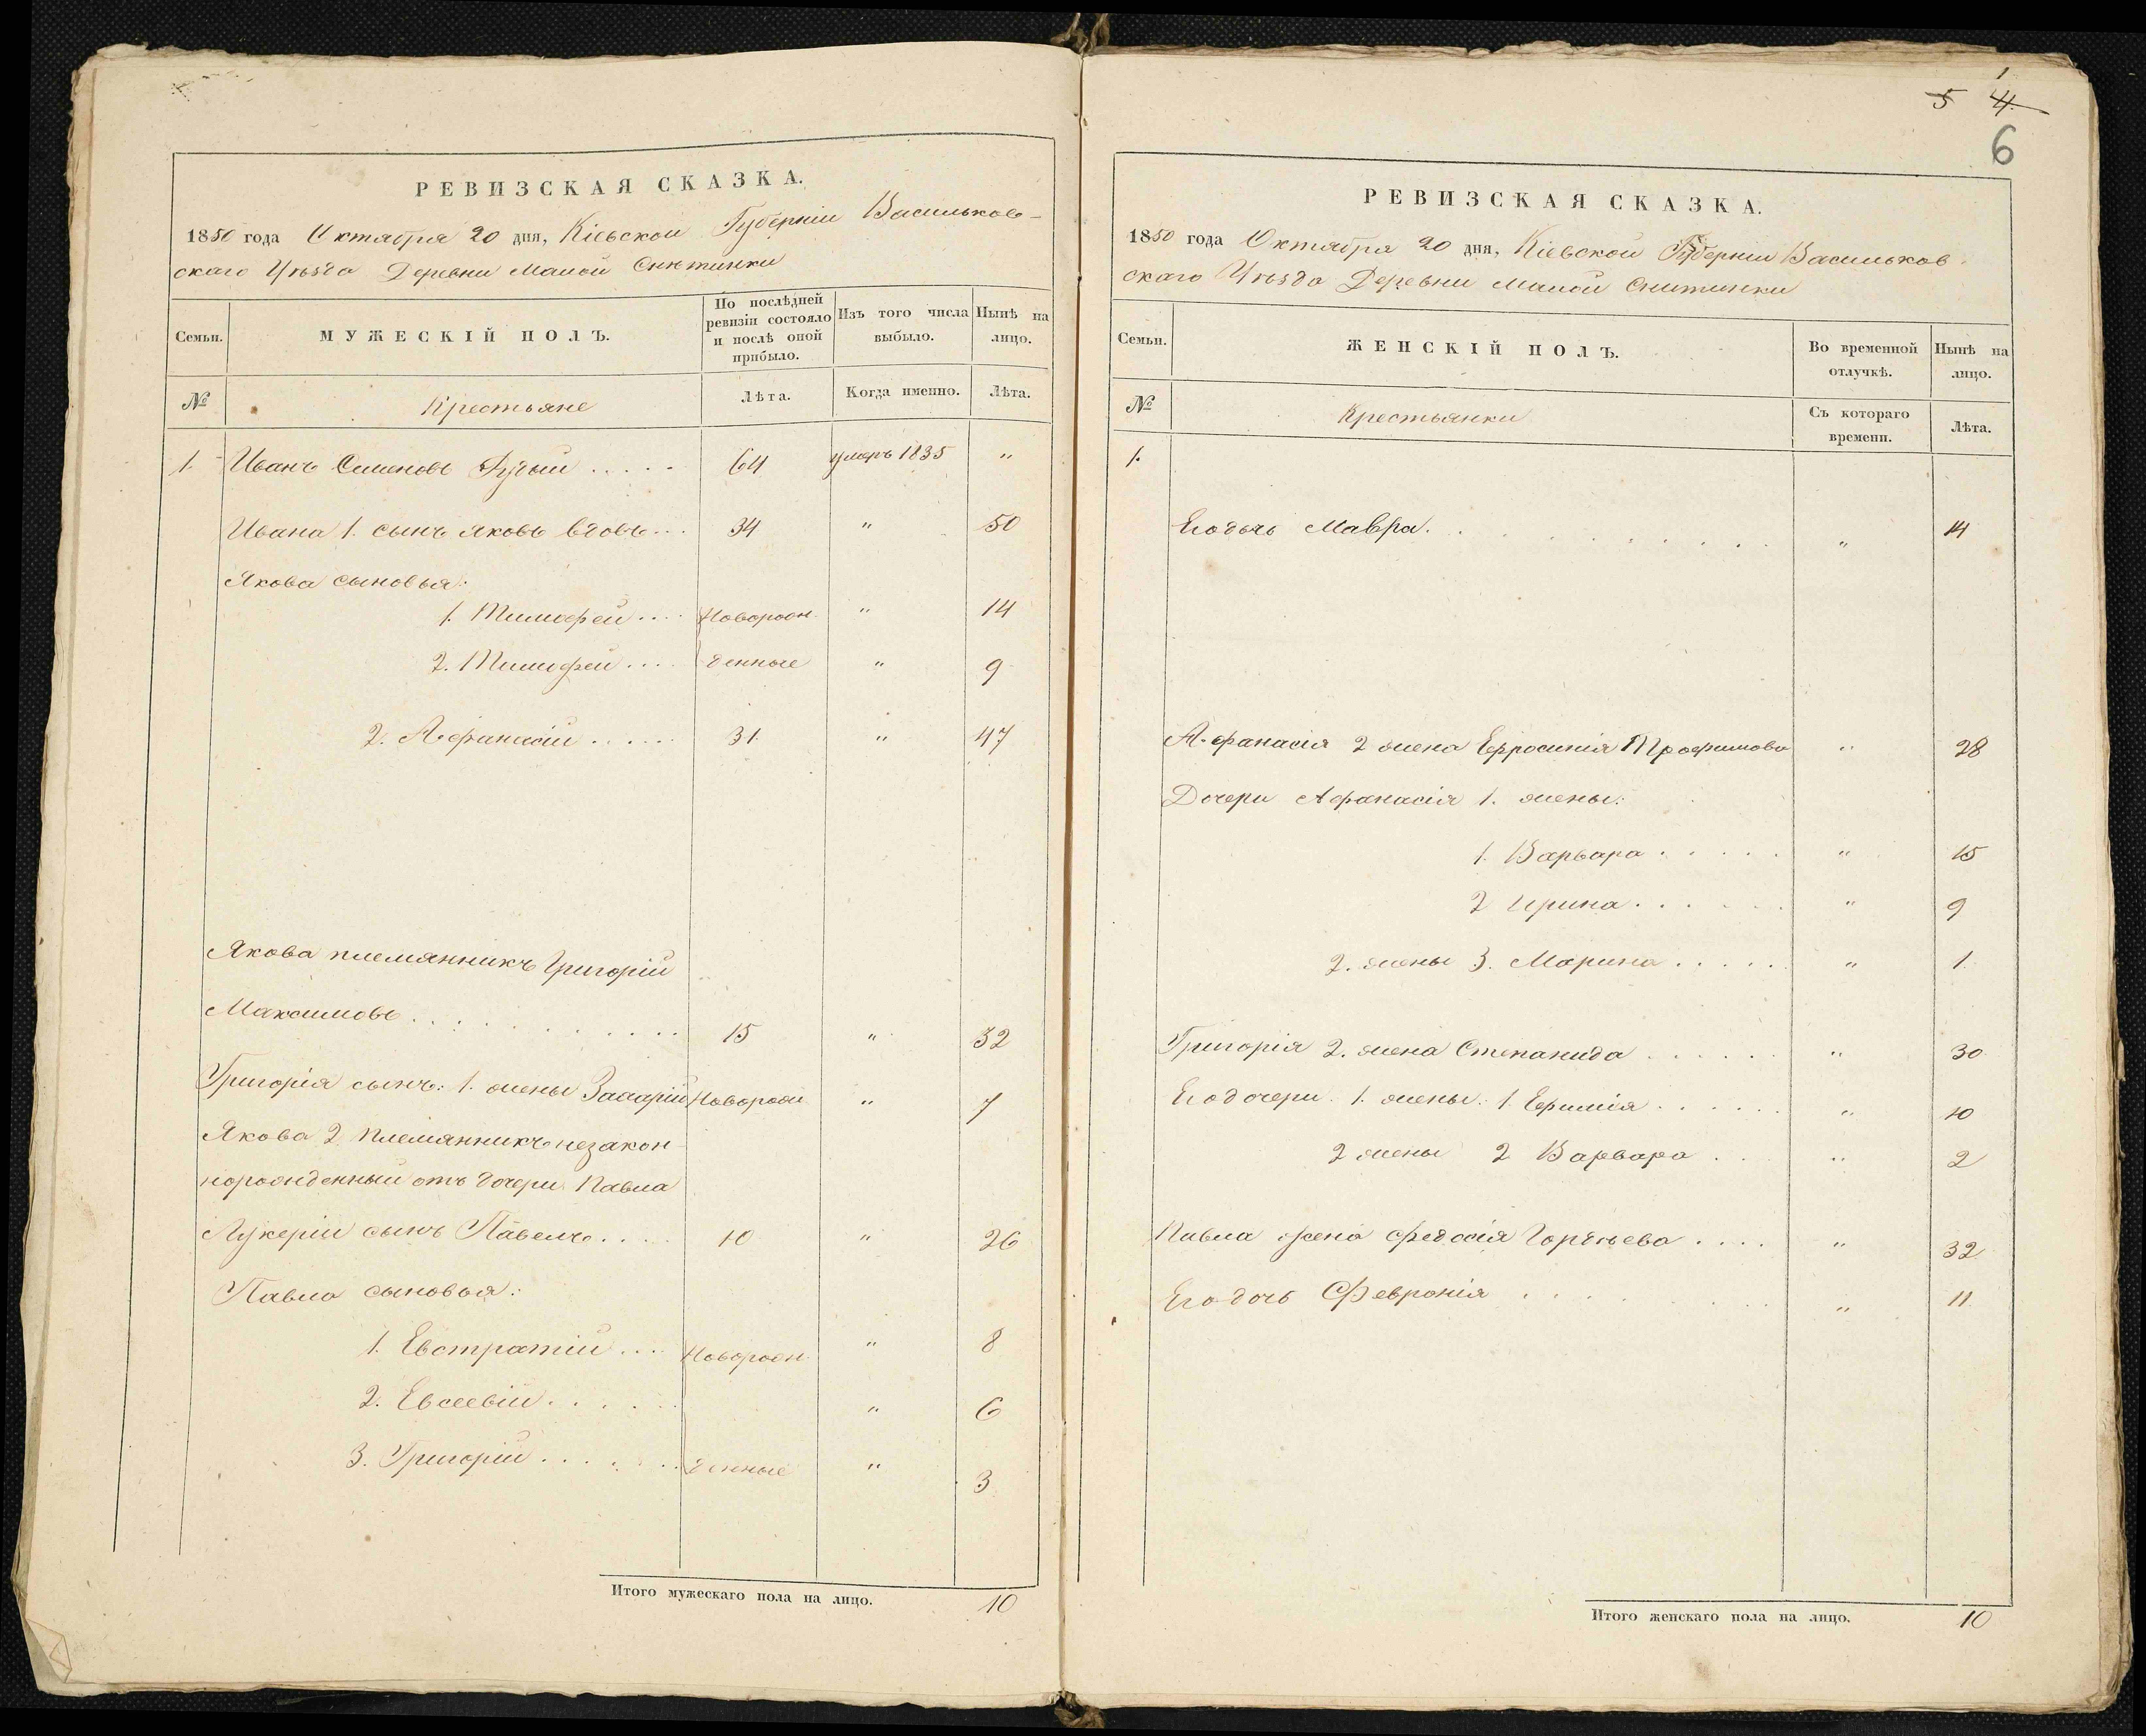 РЕВИЗСКАЯ СКАЗКА.
1850 года Октября 20 дня, Кіевской Губерніи Васильков-
скаго Уѣзда Деревни Малой Снѣтинки
Семьи.
МУЖЕСКІЙ ПОЛЪ.
По послѣдней ревизіи состояло и послѣ оной прибыло.
Изъ того числа выбыло.
Нынѣ на лицо.
№
Крестьяне
Лѣта.
Когда именно.
Лѣта.
1. Иванъ Семеновъ ..... 64 умеръ 1835 "
Ивана 1. сынъ Яковъ вдовъ... 34 " 50
Якова сыновья:
1. Тимофей.... Новорож- " 14
2. Тимофей.... денные " 9
2. Афанасій..... 31. " 47
Якова племянникъ Григорій
Максимовъ............ 15 " 32
Григорія сынъ: 1. жены Захарій Новорож " 7
Якова 2 племянникъ незакон-
норожденный отъ дочери Павла
Лукеріи сынъ Павелъ.... 10 " 26
Павла сыновья:
1. Евстратій.... Новорож- " 8
2. Евсеевій...... " 6
3. Григорій...... денные " 3
Итого мужескаго пола на лицо. 10
1
5 4
6
РЕВИЗСКАЯ СКАЗКА.
1850 года Октября 20 дня, Кіевской Губерніи Васильков
скаго Уѣзда Деревни Малой Снитинки
Семьи.
ЖЕНСКІЙ ПОЛЪ.
Во временной отлучкѣ.
Нынѣ на лицо.
№
Крестьянки
Съ котораго времени.
Лѣта.
1.
Его дочь Мавра........... " 14
Афанасія 2 жена Ефросинія Трофимова " 28
Дочери Афанасія 1. жены:
1. Варвара..... " 15
2 Ирина...... " 9
2. жены 3. Марина..... " 1.
Григорія 2. жена Степанида...... " 30
Его дочери. 1. жены: 1. Ефимія...... " 10
2 жены 2 Варвара... " 2
Павла жена Федосія Гордѣева.... " 32
Его дочь Февронія......... " 11
Итого женскаго пола на лицо. 10